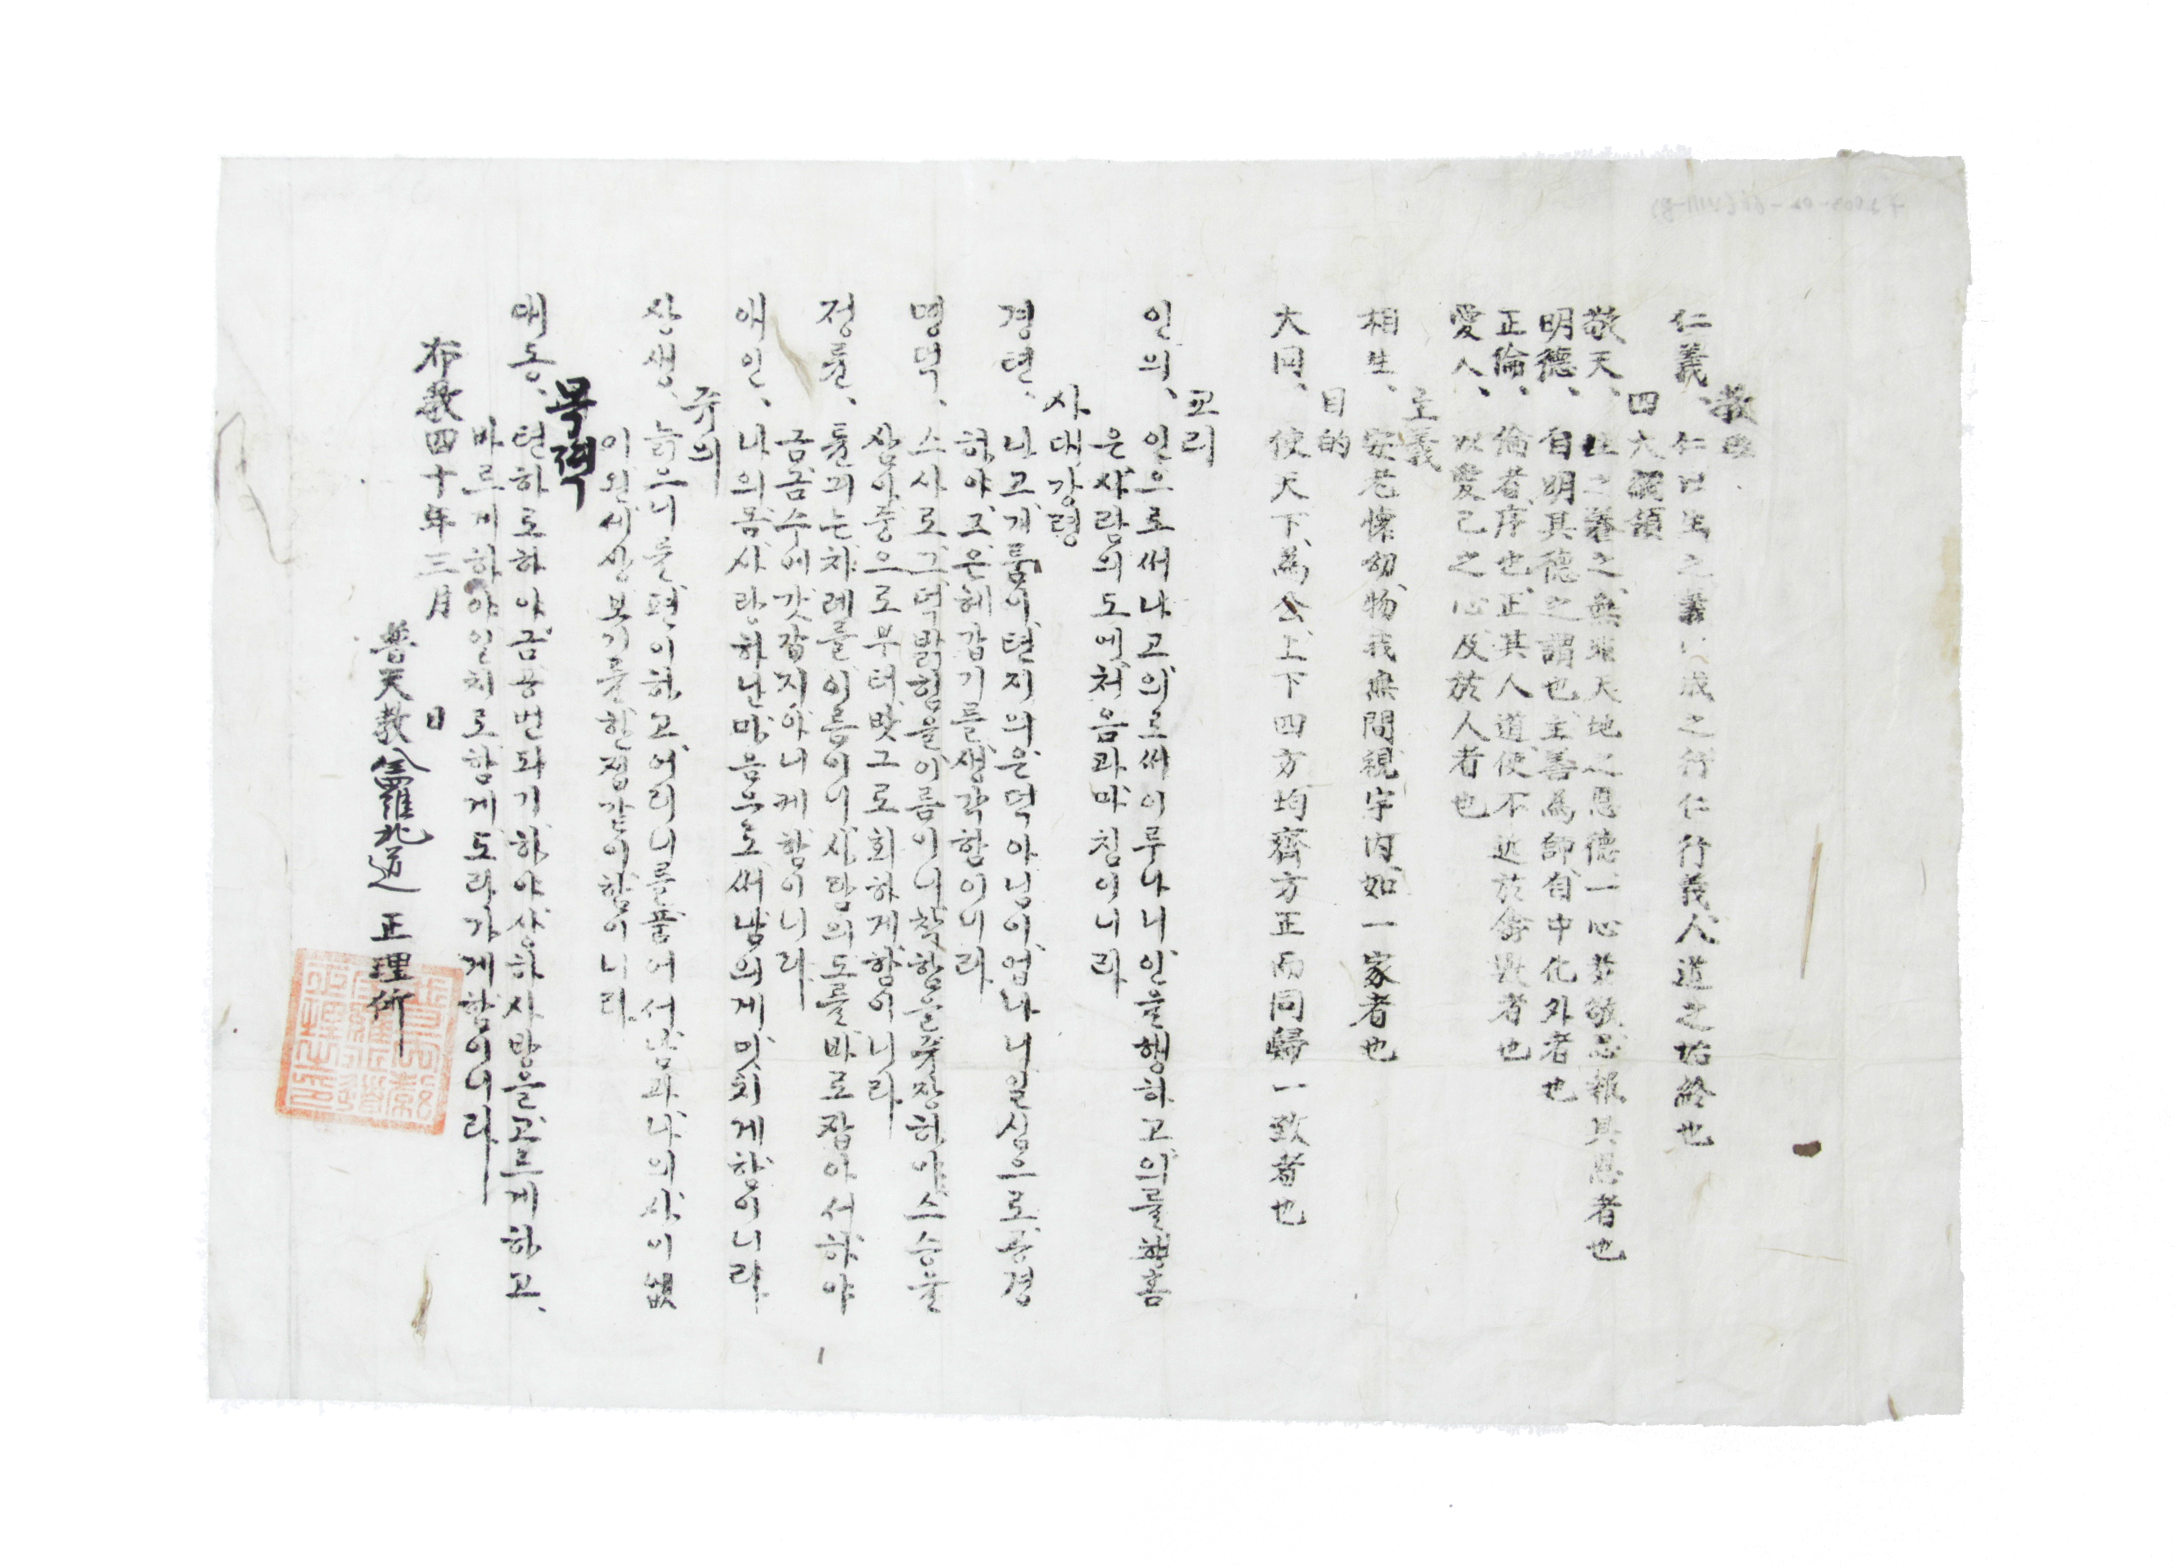 教理
仁義、仁以生之義以成之行仁行義人道之始終也
四大綱領
敬天、生之養之無非天地之恩德一心恭敬忘報其恩者也
明德、自明其德之謂也主善為師自中化外者也
正倫、倫者序也正其人道使不近於禽獸者也
愛人、以愛己之心及於人者也
主義
相生、安老懷幼物我無間視宇內如一家者也
目的
大同、使天下為公上下四方均齊方正而同歸一致者也
교리
인의、인으로써나고의로써이루나니인을행하고의를행홈
은사람의도에처음과마침이니라
사대강령
경텬、나고게룸이텬지의은덕아님이업나니일심으로공경
하야그은혜갑기를생각함이니라
명덕、스사로그덕밝힘을이름이니착함을주장하야스승을
삼아중으로부터밧그로화하게함이니라
정륜、륜긔는차례를이름이니사람의도를바로잡아서하야
금금수에갓갑지아니케함이니라
애인、나의몸사랑하난마음으로써남의게밋치게함이니라
주의
상생、늙으니를편이하고어리니를품어서남과나의사이없
이왼세상보기를한집갓이함이니라
목적
대동、텬하로하야금공변되기하야상하사방을고르게하고、
바르게하야일치로함게도라가게함이니라
布教四十年三月 日
普天教 全羅北道 正理 印